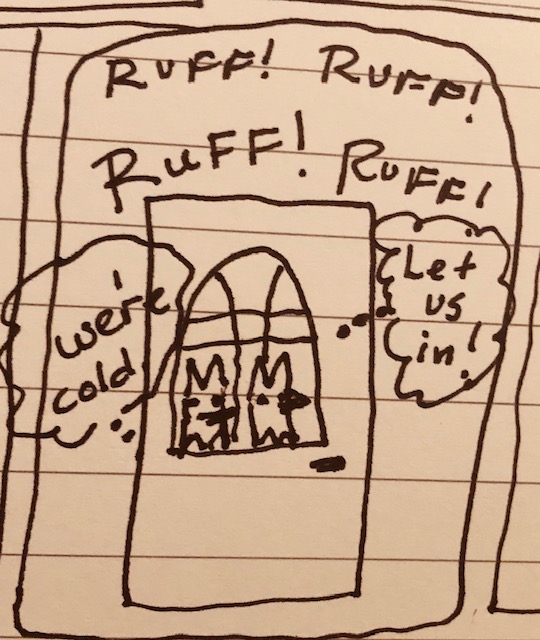 RUFF! RUFF!
RUFF! RUFF!
Let
us
in!
we're
cold